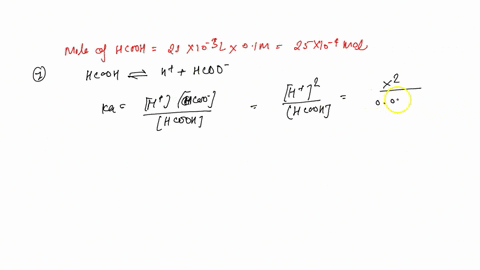 Mole of HCOOH = 25 × 10⁻³ L × 0.1 M = 25 × 10⁻⁴ mol
HCOOH ⇌ H⁺ + HCOO⁻
Ka = [H⁺] [HCOO⁻] / [HCOOH] = [H⁺]² / [HCOOH] = x² / 0.0